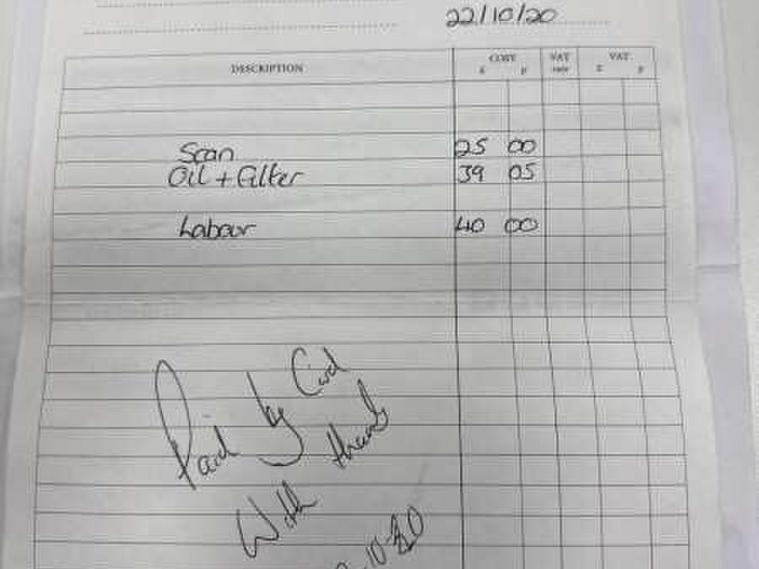 22/10/20
DESCRIPTION COST VAT VAT
£ p rate £ p
Scan 25 00
Oil + Filter 39 05
Labour 40 00
Paid by Card
With thanks
-10-20